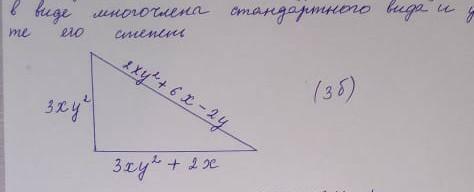 в виде многочлена стандартного вида и у
те его степень
2xy² + 6x - 2y
3xy²
(3б)
3xy² + 2x